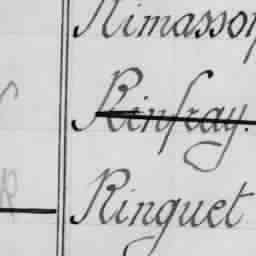 Rimasson
Rinfray.
Ringuet